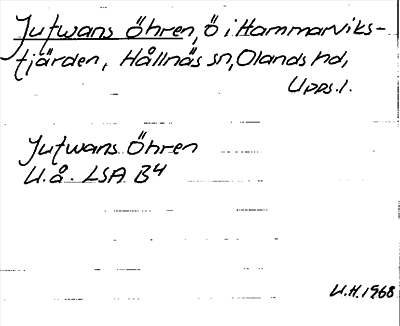 Jutwans öhren, ö i Hammarviks-
fjärden, Hållnäs sn, Olands hd,
Upps. l.
Jutwans Öhren
U.å. LSA B4
U.H. 1968